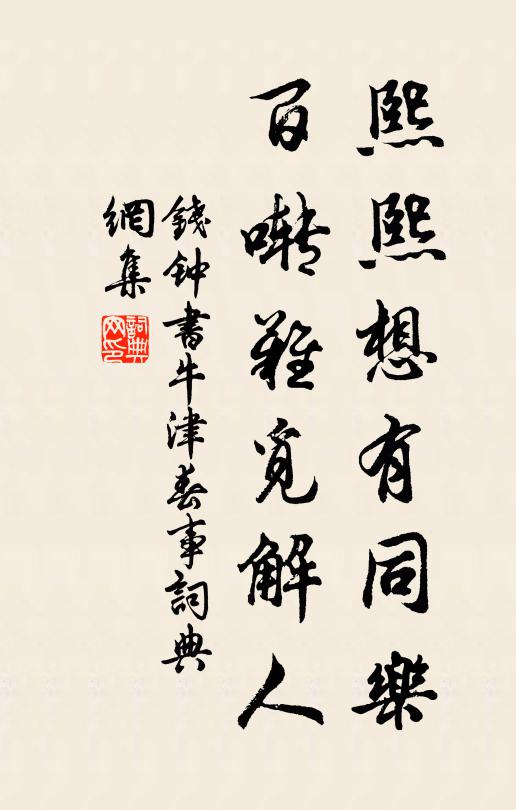 熙熙想有同樂
百囀難覓解人
錢钟書牛津春事詞典
網集
詞典网印